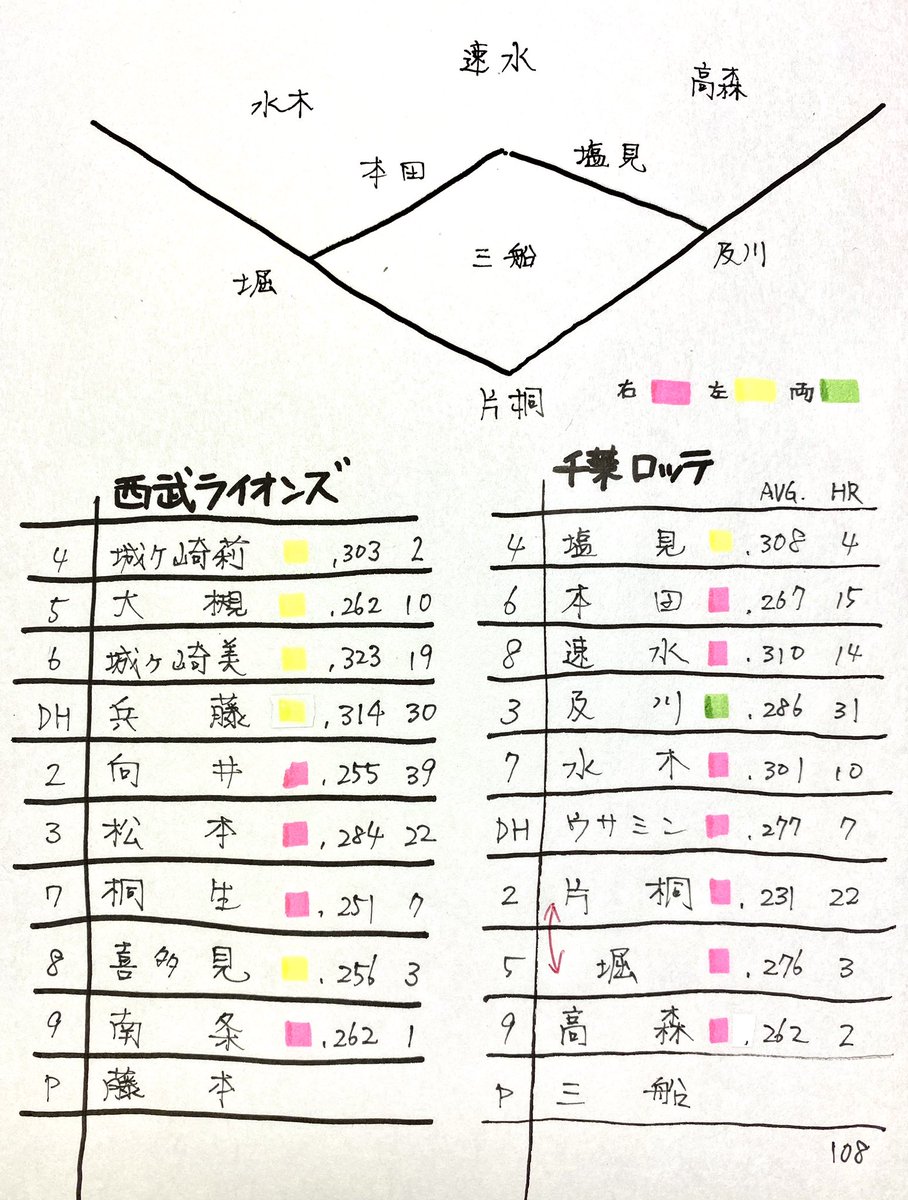 速水
水木
高森
本田
塩見
三船
堀
及川
片桐
右 左 両
西武ライオンズ
4 城ヶ崎莉 .303 2
5 大槻 .262 10
6 城ヶ崎美 .323 19
DH 兵藤 .314 30
2 向井 .255 39
3 松本 .284 22
7 桐生 .251 7
8 喜多見 .256 3
9 南条 .262 1
P 藤本
千葉ロッテ
AVG. HR
4 塩見 .308 4
6 本田 .267 15
8 速水 .310 14
3 及川 .286 31
7 水木 .301 10
DH ウサミン .277 7
2 片桐 .231 22
5 堀 .276 3
9 高森 .262 2
P 三船
108